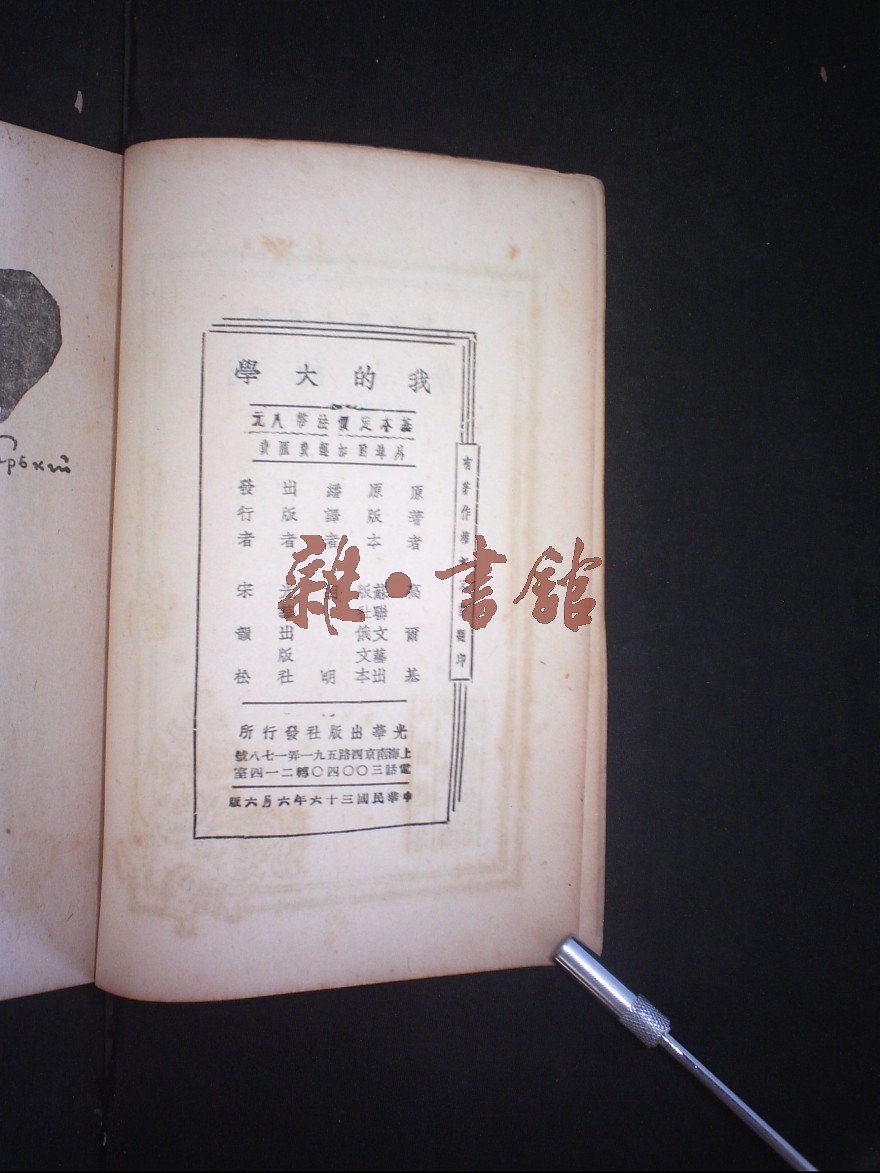 我的大學
基本定價法幣八元
外埠酌加費匯費
有著作權翻印
原著者 高爾基
原版本 蘇聯文藝出版社俄文本
繙譯者 明
出版者 光華出版社
發行者 宋韻松
光華出版社發行所
上海南京四路五九一弄一七八號
電話三〇〇四〇轉二一四室
中華民國三十六年六月六版
рький
雜·書館